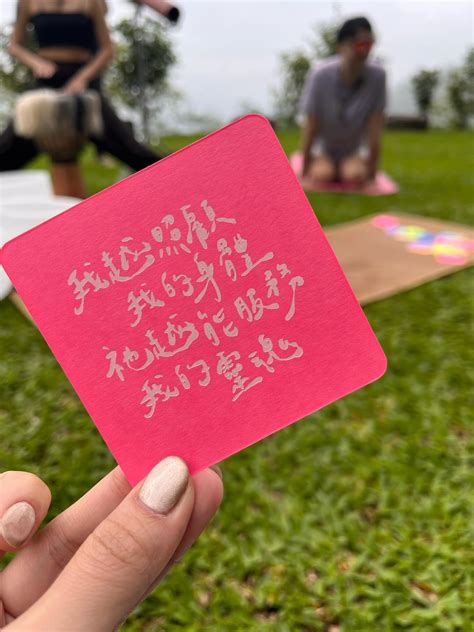 我越照顧
我的身體
祂越能服務
我的靈魂